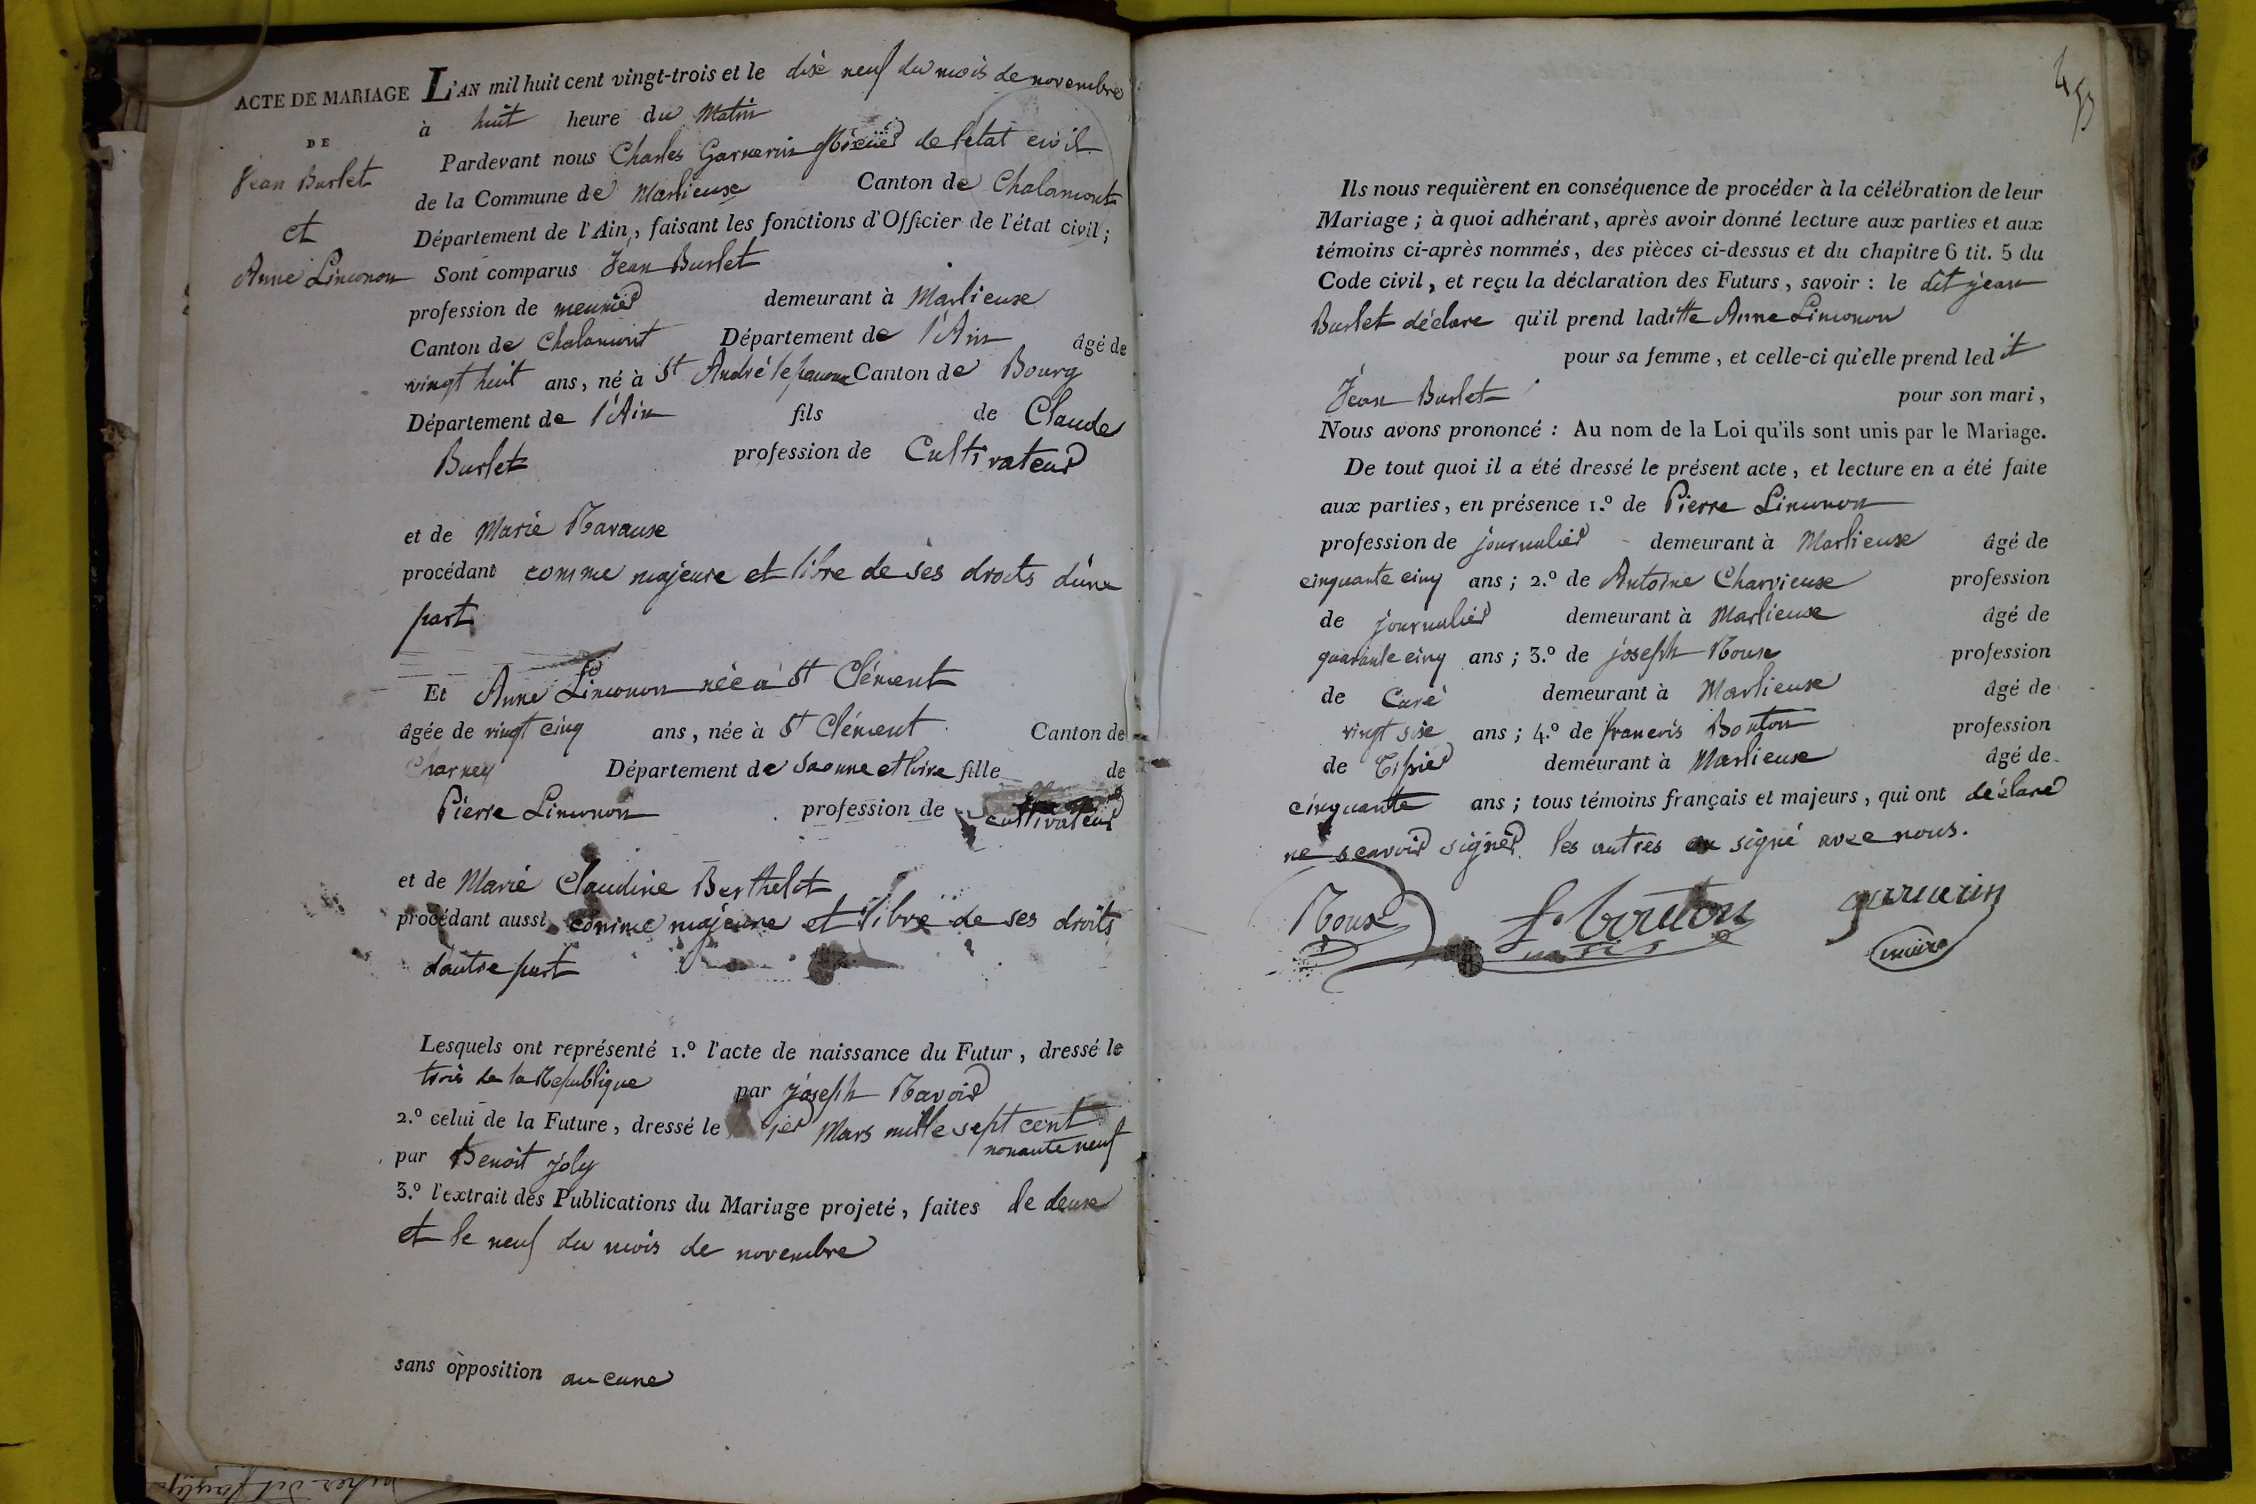 ACTE DE MARIAGE
DE
Jean Burlet
et
Anne Limonon
L'AN mil huit cent vingt-trois et le dix neuf du mois de novembre
à huit heure du Matin
Pardevant nous Charles Garnerin de l'état civil
de la Commune de Marlieuse Canton de Chalamont
Département de l'Ain, faisant les fonctions d'Officier de l'état civil;
Sont comparus Jean Burlet
profession de meunier demeurant à Marlieuse
Canton de Chalamont Département de l'Ain âgé de
vingt huit ans, né à St André le Canton de Bourg
Département de l'Ain fils de Claude
Burlet profession de Cultivateur
et de Marie Ravause
procédant comme majeure et libre de ses droits d'une
part
Et Anne Limonon née à St Clément
âgée de vingt cinq ans, née à St Clément Canton de
Charney Département de Saonne et loire fille de
Pierre Limonon profession de cultivateur
et de Marie Claudine Berthelot
procédant aussi comme majeure et libre de ses droits
dautre part
Lesquels ont représenté 1.º l'acte de naissance du Futur, dressé le
trois de la République par joseph Ravoir
2.º celui de la Future, dressé le 1er Mars mille sept cent
nonante neuf
par Benoit joly
3.º l'extrait des Publications du Mariage projeté, faites le deuse
et le neuf du mois de novembre
sans opposition aucune
453
Ils nous requièrent en conséquence de procéder à la célébration de leur
Mariage; à quoi adhérant, après avoir donné lecture aux parties et aux
témoins ci-après nommés, des pièces ci-dessus et du chapitre 6 tit. 5 du
Code civil, et reçu la déclaration des Futurs, savoir: le dit jean
Burlet déclare qu'il prend laditte Anne Limonon
pour sa femme, et celle-ci qu'elle prend ledit
Jean Burlet pour son mari,
Nous avons prononcé: Au nom de la Loi qu'ils sont unis par le Mariage.
De tout quoi il a été dressé le présent acte, et lecture en a été faite
aux parties, en présence 1.º de Pierre Limonon
profession de journalier demeurant à Marlieuse âgé de
cinquante cinq ans; 2.º de Antoine Charvieuse profession
de journalier demeurant à Marlieuse âgé de
quarante cinq ans; 3.º de joseph Rouse profession
de Curé demeurant à Marlieuse âgé de
vingt sise ans; 4.º de francois Bouton profession
de Tissier demeurant à Marlieuse âgé de
cinquante ans; tous témoins français et majeurs, qui ont déclaré
ne scavoir signer les autres on signé avec nous.
Roux f. bouton garnerin
maire